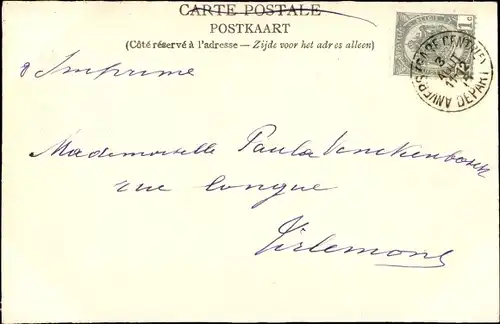 CARTE POSTALE
POSTKAART
(Côté réservé à l'adresse — Zijde voor het adres alleen)
1c
BELGIË
ANVERS GARE CENTRALE DEPART
3 AOUT
12
Imprime
Mademoiselle Paula
rue longue
Tirlemont